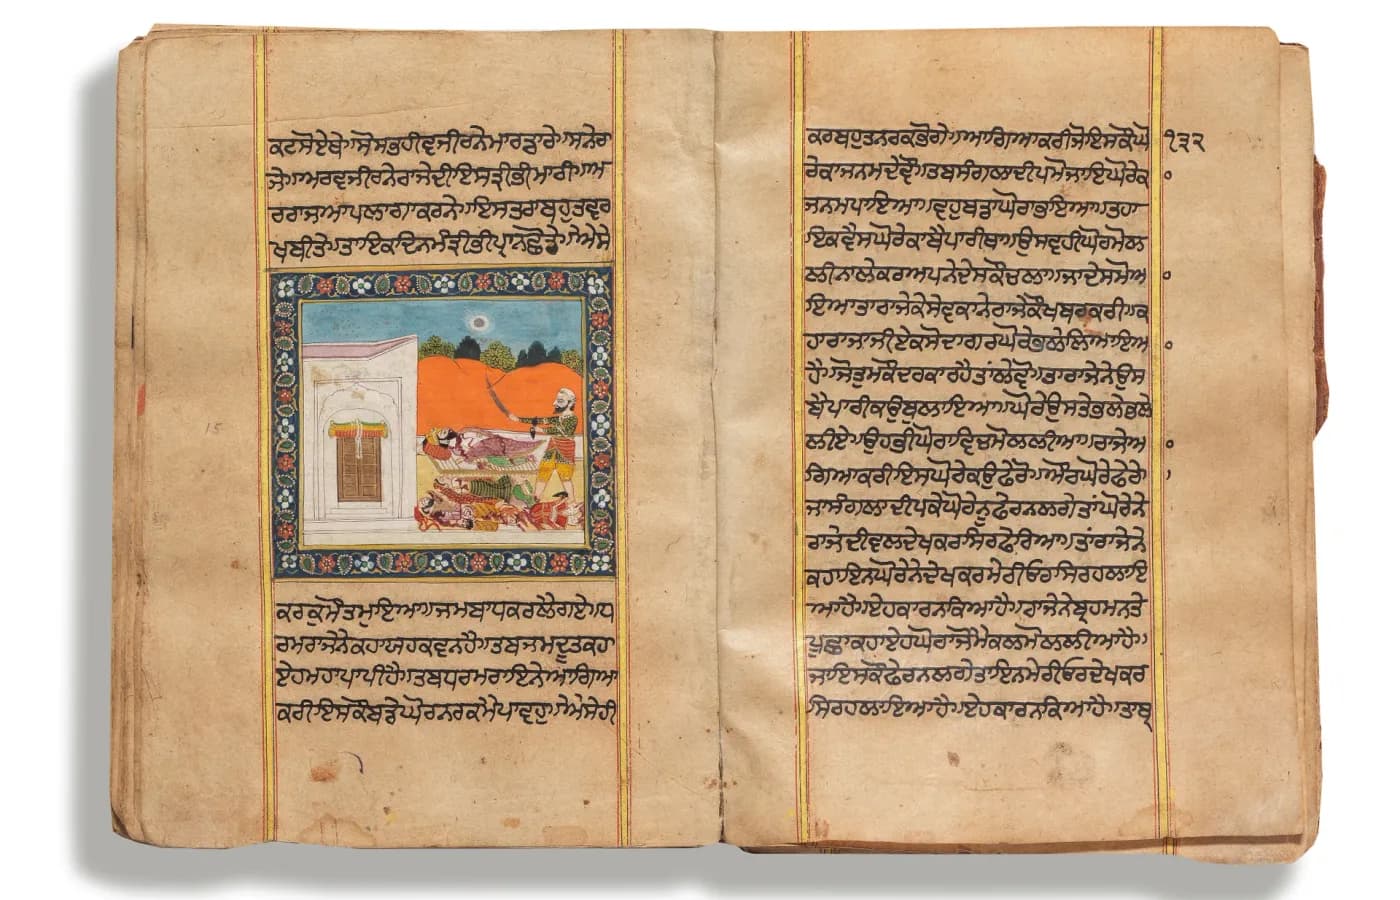 ਕਟਸੋਏਥੇ।ਸੋਸਭਹੀਵਜੀਰਨੇਮਾਰਡਾਰੇ।ਸਨੇਰਾ
ਜੇ।ਅਰਵਜੀਰਨੇਰਾਜੇਦੀਇਸਤ੍ਰੀਭੀਮਾਰੀ।ਅ
ਰਰਾਜਆਪਲਾਗਾਕਰਨੇ।ਇਸਤਰਾਬਹੁਤਵਰ
ਖਬੀਤੇ।ਤਾਇਕਦਿਨਮੰਤ੍ਰੀਭੀਪ੍ਰਾਨਛੋਡੇ।ਐਸੇ
ਕਰਕੁਮੌਤਮੁਇਆ।ਜਮਬਾਧਕਰਲੈਗਏ।ਧ
ਰਮਰਾਜੇਨੇਕਹਾਯਹਕਵਨਹੈ।ਤਬਜਮਦੂਤਕਹਾ
ਏਹਮਹਾਪਾਪੀਹੈ।ਤਬਧਰਮਰਾਇਨੇਆਗਿਆ
ਕਰੀ।ਇਸਕੌਬਡੇਘੋਰਨਰਕਮੇਪਾਵਹੁ।ਐਸੇਹੀ
ਕਰਬਹੁਤਨਰਕਭੋਗੇ।ਆਗਿਆਕਰੀਜੋਇਸਕੌਘੋ ੧੩੨
ਰੇਕਾਜਨਮਦੇਵੌ।ਤਬਸੰਗਲਾਦੀਪਮੋਜਾਇਘੋਰੇਕ
ਜਨਮਪਾਇਆ।ਵਹੁਬਡਾਘੋਰਾਭਇਆ।ਤਹਾ
ਇਕਵੈਸਘੋਰੇਕਾਬੈਪਾਰੀਥਾ।ਉਸਵਹੀਘੋਰਮੋਲ
ਲੀਨਾਲੇਕਰਆਪਨੇਦੇਸਕੌਚਲਾ।ਜਾਦੇਸਮੋਆ
ਇਆਤਾਰਾਜੇਕੇਸੇਵਕਾਨੇਰਾਜੇਕੌਖਬਰਕਰੀ।ਕ
ਹਾਰਾਜਾਜੀਏਕਸੋਦਾਗਰਘੋਰੇਭਲੇਲਿਆਇਆ
ਹੈ।ਜੋਤੁਮਕੌਦਰਕਾਰਹੈਤਾਂਲੇਵੋ।ਤਾਰਾਜੇਨੇਉਸ
ਬੈਪਾਰੀਕਉਬੁਲਾਇਆ।ਘੋਰੇਉਸਤੇਭਲੇਭਲੇ
ਲੀਏ।ਉਹਭੀਘੋਰਾਵਿਚਮੋਲਲੀਆ।ਰਾਜੇਆ
ਗਿਆਕਰੀਇਸਘੋਰੇਕਉਫੇਰੋ।ਔਰਘੋਰੇਫੇਰੇ।
ਜਾਸੰਗਲਾਦੀਪਕੇਘੋਰੇਨੂਫੇਰਨਲਗੇਤਾਂਘੋਰੇਨੇ
ਰਾਜੇਦੀਵਲਦੇਖਕਰਸਿਰਫੇਰਿਆ।ਤਾਂਰਾਜੇਨੇ
ਕਹਾਇਨਘੋਰੇਨੇਦੇਖਕਰਮੇਰੀਓਰਸਿਰਹਲਾਇ
ਆਹੈ।ਏਹਕਾਰਨਕਿਆਹੈ।ਰਾਜੇਨੇਬ੍ਰਹਮਨਤੇ
ਪੂਛਾਕਹਾਏਹਘੋਰਾਜੋਮੈਕਲਮੋਲਲੀਆਹੈ।
ਜਾਇਸਕੌਫੇਰਨਲਗੇਤਾਇਨਮੇਰੀਓਰਦੇਖਕਰ
ਸਿਰਹਲਾਇਆਹੈ।ਏਹਕਾਰਨਕਿਆਹੈ।ਤਾਬ੍ਰ